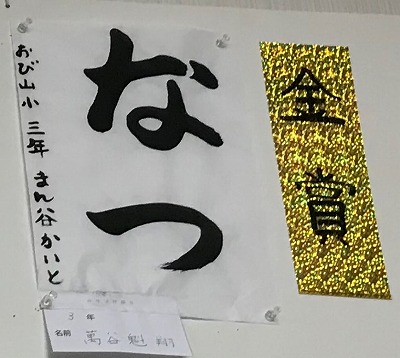 金賞
なつ
おび山小 三年 まん谷かいと
3 年
名前 萬谷 魁翔